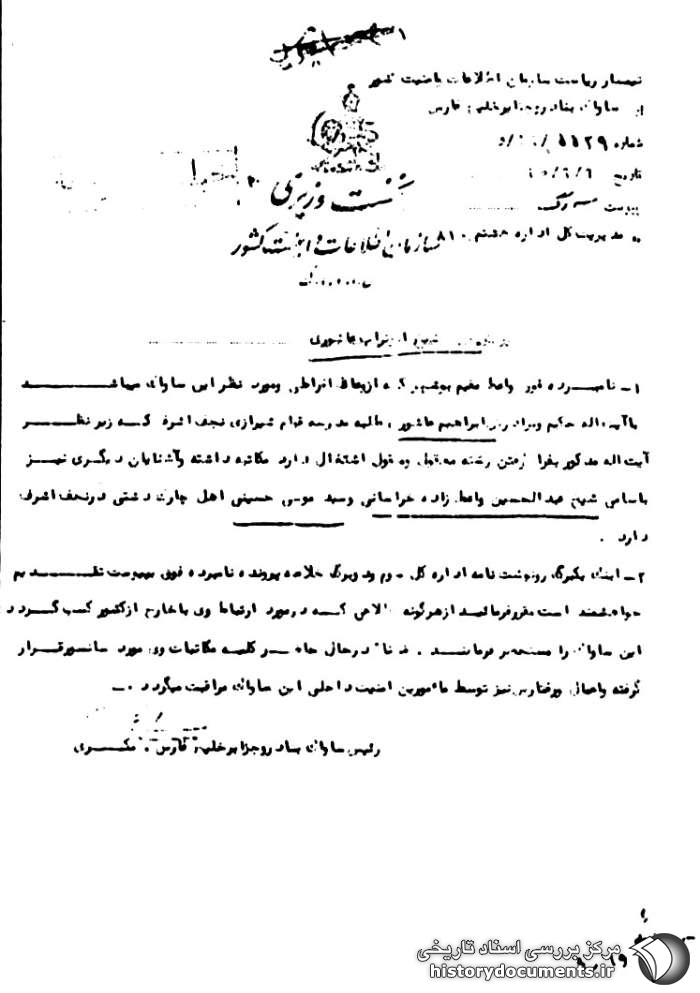 تیمسار ریاست سازمان اطلاعات و امنیت کشور
از ساواک بنادر و جزایر خلیج فارس
شماره ۵۱۲۹/
تاریخ /۶/۶
پیوست برگ
به مدیریت کل اداره هشتم ۸۱۰
نخست وزیری
سازمان اطلاعات و امنیت کشور
ساواک
شیخ ابوتراب عاشوری
۱- نامبرده فوق واعظ مقیم بوشهر که از وعاظ افراطی و مورد نظر این ساواک میباشد
با آیت اله حکیم و برادرش ابراهیم عاشوری طلبه مدرسه قوام شیرازی نجف اشرف که زیر نظر
آیت اله مذکور بفرا گرفتن رشته معقول و منقول اشتغال دارد مکاتبه داشته و آشنایان دیگری نیز
باسامی شیخ عبدالحسین واعظ زاده خراسانی و سید موسی حسینی اهل چارک دشتی در نجف اشرف
دارد .
۲- اینک یکبرگ رونوشت نامه اداره کل سوم و دو برگ خلاصه پرونده نامبرده فوق بپیوست تقدیم
خواهشمند است مقرر فرمائید از هرگونه اطلاعی که در مورد ارتباط وی با خارج از کشور کسب گردد
این ساواک را مستحضر فرمایند . ضمناً در حال حاضر کلیه مکاتبات وی مورد سانسور قرار
گرفته و اعمال و رفتارش نیز توسط مأمورین امنیت داخلی این ساواک مراقبت میگردد .-
رئیس ساواک بنادر و جزایر خلیج فارس .
مرکز بررسی اسناد تاریخی
historydocuments.ir